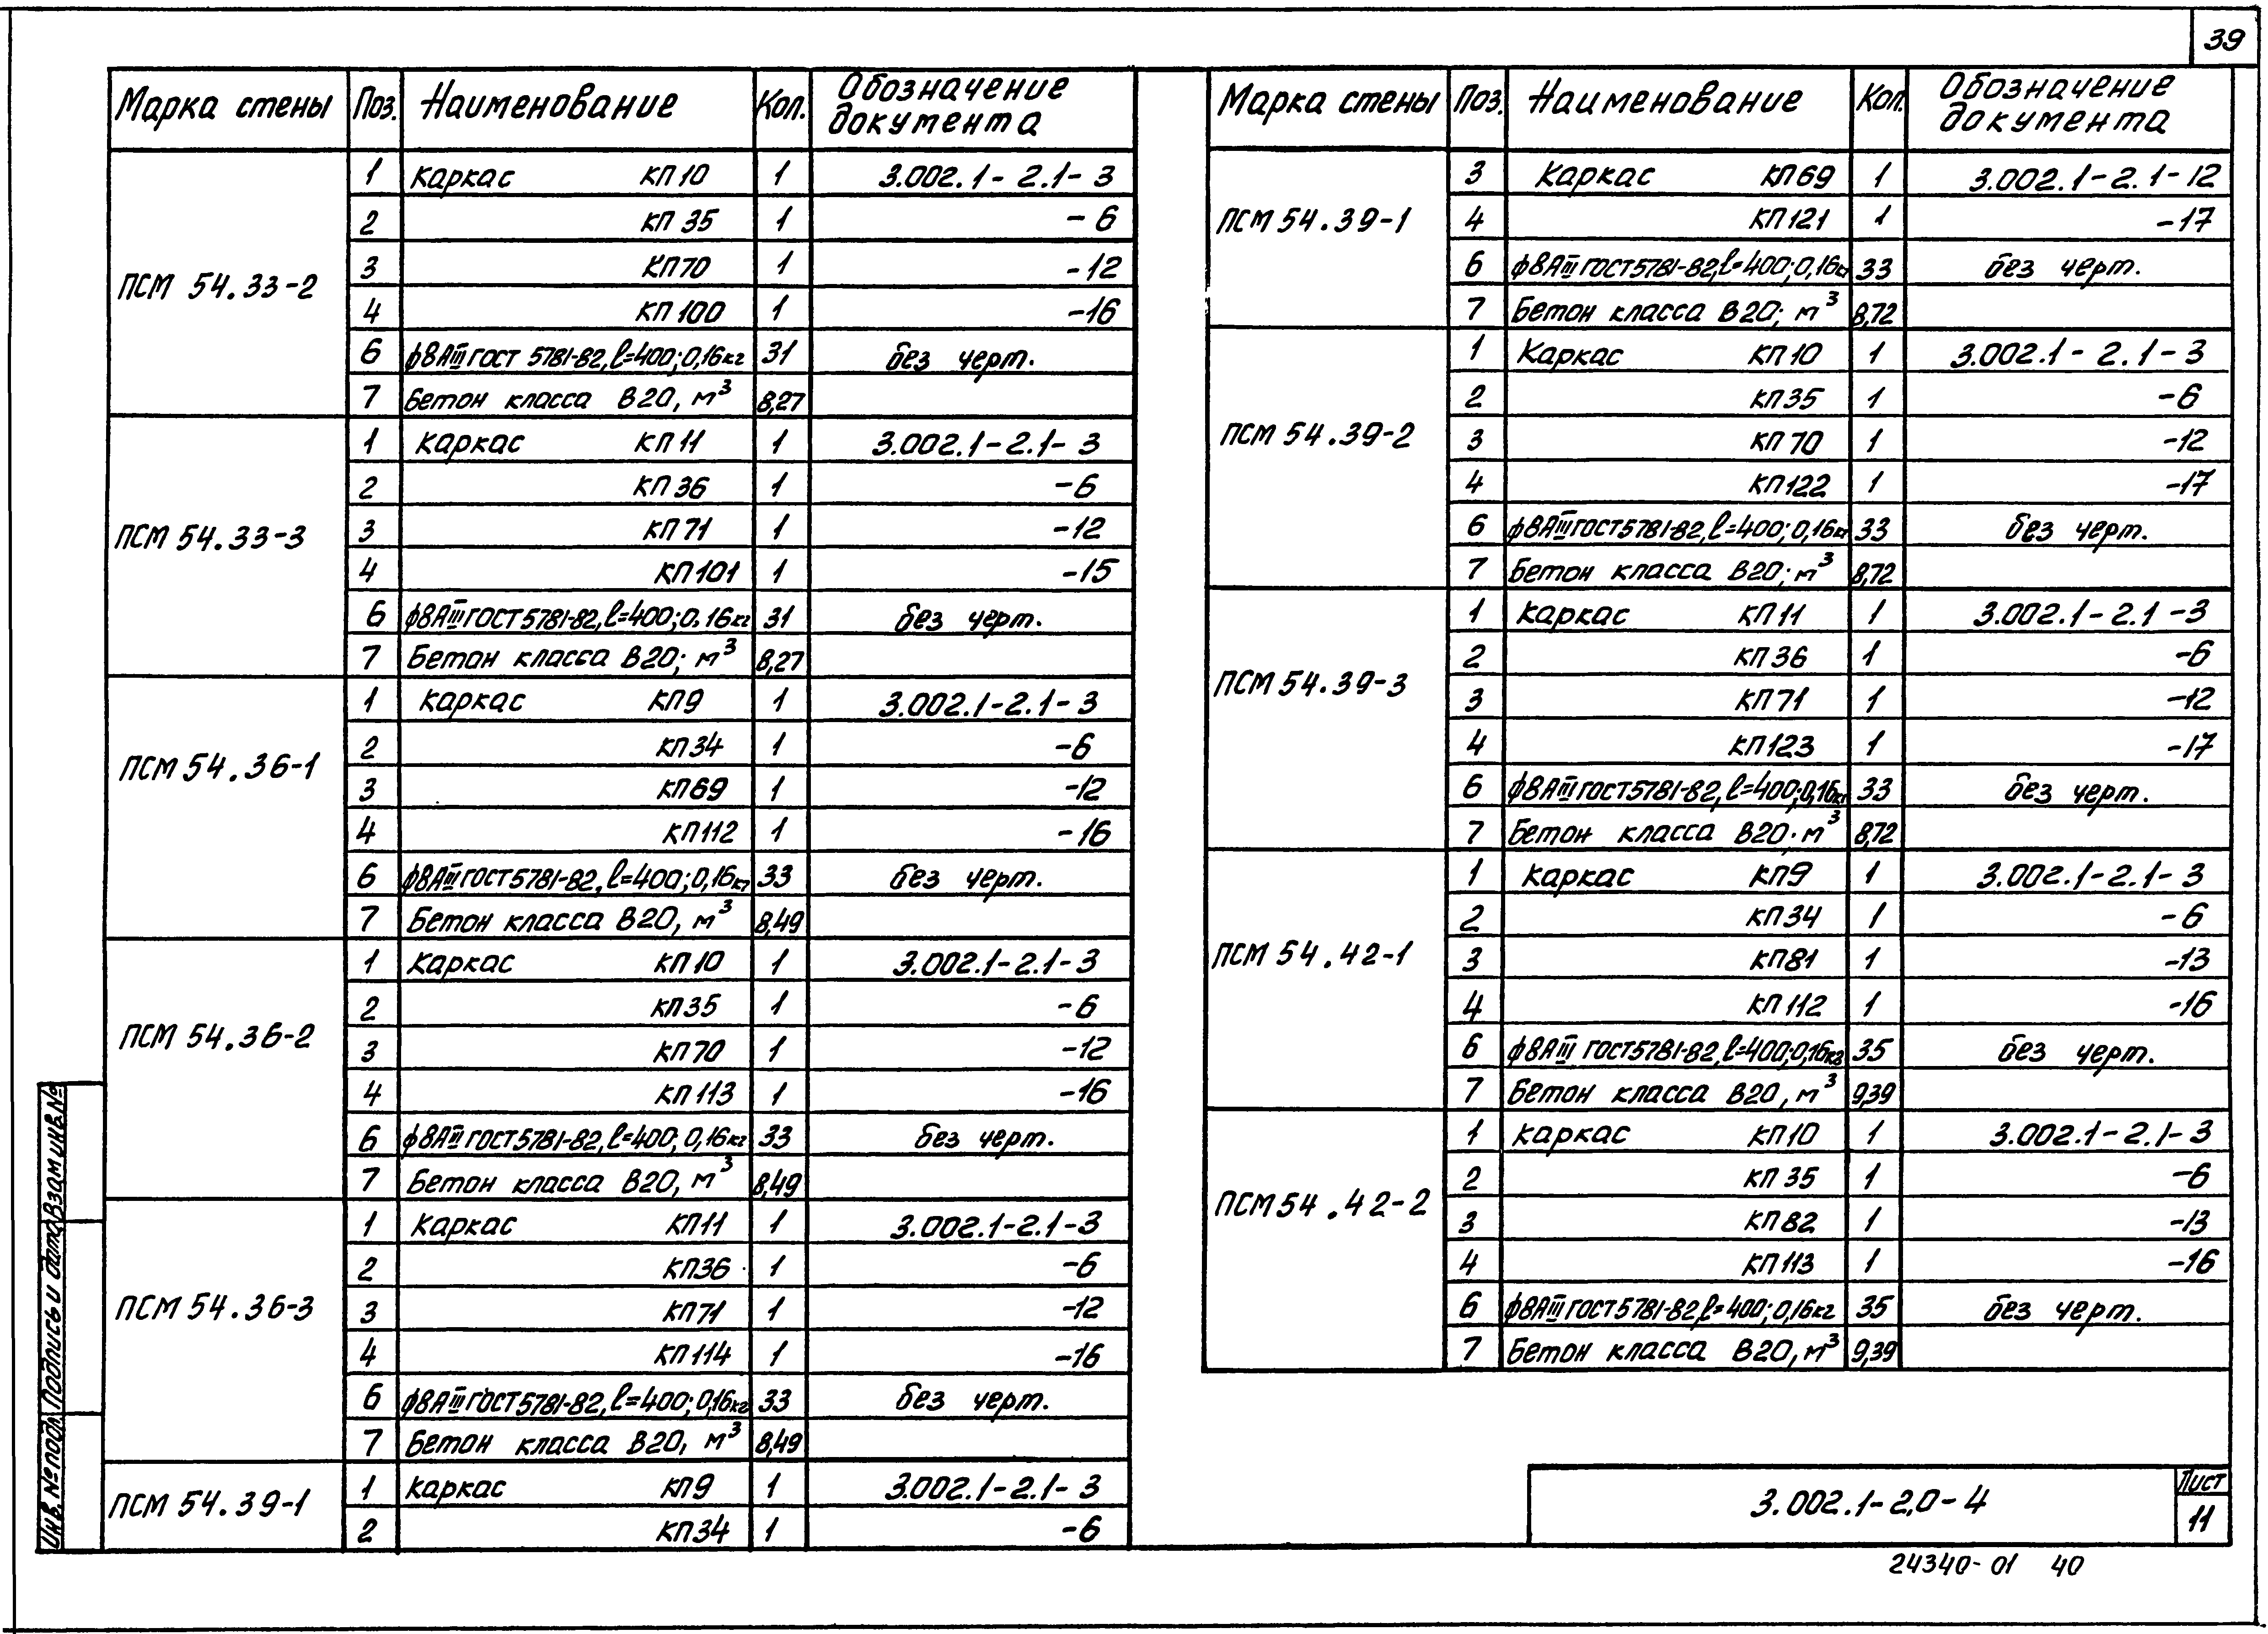 39
Марка стены Поз. Наименование Кол. Обозначение документа
ПСМ 54.33-2
1 Каркас КП10 1 3.002.1-2.1-3
2 КП35 1 -6
3 КП70 1 -12
4 КП100 1 -16
6 ф8АIII ГОСТ 5781-82, l=400; 0,16кг 31 без черт.
7 Бетон класса В20, м³ 8,27
ПСМ 54.33-3
1 Каркас КП11 1 3.002.1-2.1-3
2 КП36 1 -6
3 КП71 1 -12
4 КП101 1 -15
6 ф8АIII ГОСТ 5781-82, l=400; 0,16кг 31 без черт.
7 Бетон класса В20; м³ 8,27
ПСМ 54.36-1
1 Каркас КП9 1 3.002.1-2.1-3
2 КП34 1 -6
3 КП69 1 -12
4 КП112 1 -16
6 ф8АIII ГОСТ 5781-82, l=400; 0,16кг 33 без черт.
7 Бетон класса В20, м³ 8,49
ПСМ 54.36-2
1 Каркас КП10 1 3.002.1-2.1-3
2 КП35 1 -6
3 КП70 1 -12
4 КП113 1 -16
6 ф8АIII ГОСТ 5781-82, l=400; 0,16кг 33 без черт.
7 Бетон класса В20, м³ 8,49
ПСМ 54.36-3
1 Каркас КП11 1 3.002.1-2.1-3
2 КП36 1 -6
3 КП71 1 -12
4 КП114 1 -16
6 ф8АIII ГОСТ 5781-82, l=400; 0,16кг 33 без черт.
7 Бетон класса В20, м³ 8,49
ПСМ 54.39-1
1 Каркас КП9 1 3.002.1-2.1-3
2 КП34 1 -6
Марка стены Поз. Наименование Кол. Обозначение документа
ПСМ 54.39-1
3 Каркас КП69 1 3.002.1-2.1-12
4 КП121 1 -17
6 ф8АIII ГОСТ 5781-82, l=400; 0,16кг 33 без черт.
7 Бетон класса В20; м³ 8,72
ПСМ 54.39-2
1 Каркас КП10 1 3.002.1-2.1-3
2 КП35 1 -6
3 КП70 1 -12
4 КП122 1 -17
6 ф8АIII ГОСТ 5781-82, l=400; 0,16кг 33 без черт.
7 Бетон класса В20; м³ 8,72
ПСМ 54.39-3
1 Каркас КП11 1 3.002.1-2.1-3
2 КП36 1 -6
3 КП71 1 -12
4 КП123 1 -17
6 ф8АIII ГОСТ 5781-82, l=400; 0,16кг 33 без черт.
7 Бетон класса В20. м³ 8,72
ПСМ 54.42-1
1 Каркас КП9 1 3.002.1-2.1-3
2 КП34 1 -6
3 КП81 1 -13
4 КП112 1 -16
6 ф8АIII ГОСТ 5781-82, l=400; 0,16кг 35 без черт.
7 Бетон класса В20, м³ 9,39
ПСМ 54.42-2
1 Каркас КП10 1 3.002.1-2.1-3
2 КП35 1 -6
3 КП82 1 -13
4 КП113 1 -16
6 ф8АIII ГОСТ 5781-82, l=400; 0,16кг 35 без черт.
7 Бетон класса В20, м³ 9,39
Инв. № подл. Подпись и дата Взам инв. №
3.002.1-2,0-4
Лист
11
24340-01 40